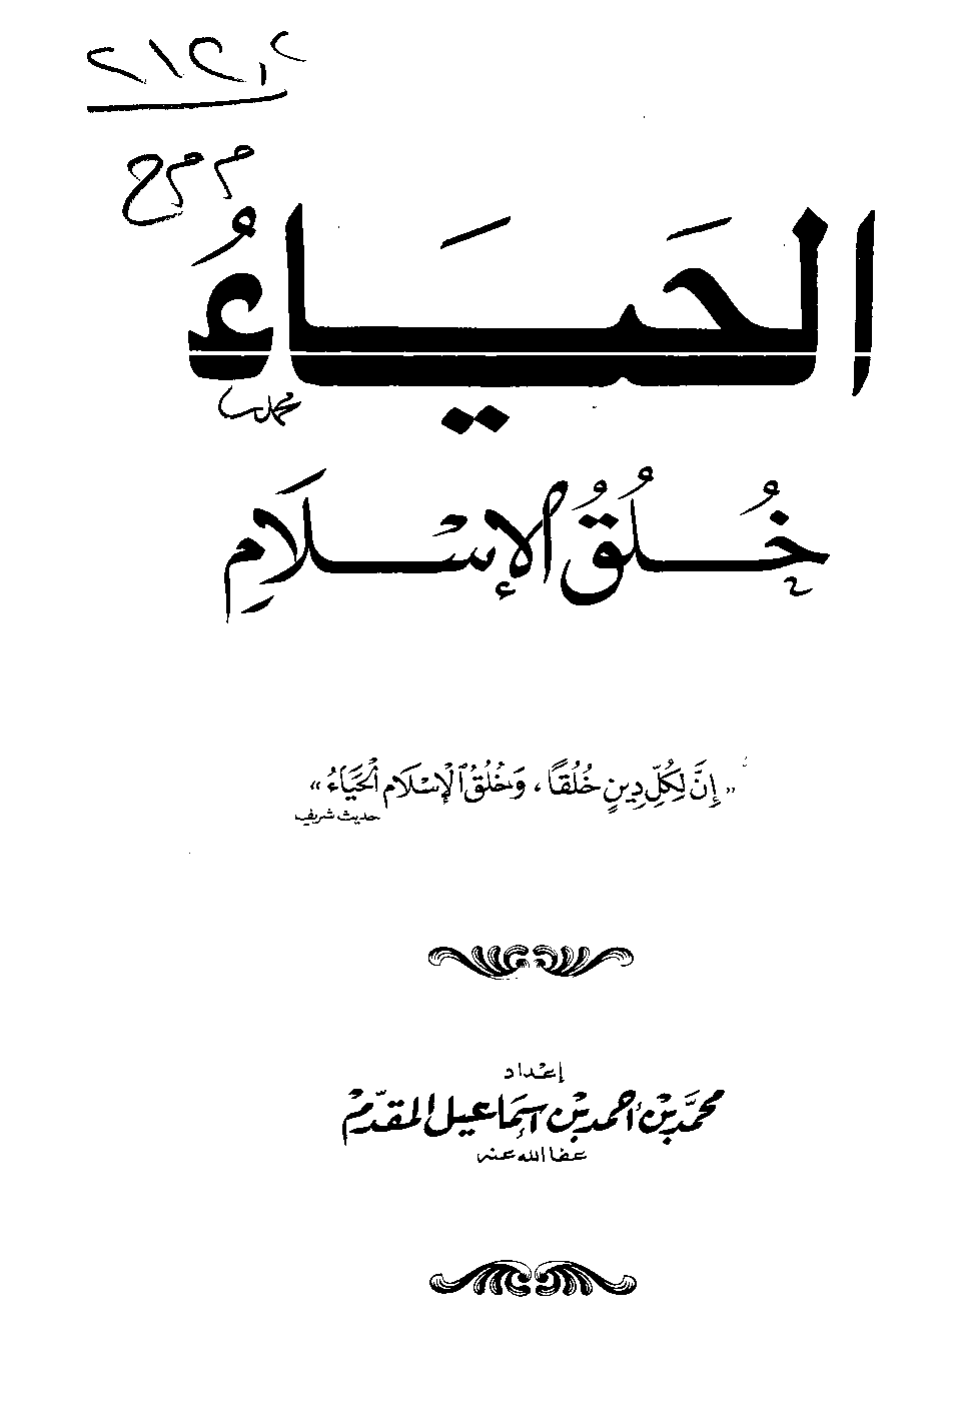 الحَيَاءُ
خُلُقُ الإِسْلَامِ
« إِنَّ لِكُلِّ دِينٍ خُلُقًا ، وَخُلُقُ الْإِسْلَامِ الْحَيَاءُ »
حديث شريف
إعداد
محمَّد بْن أحمد بْن إسمَاعيل المقدّم
عفا الله عنه